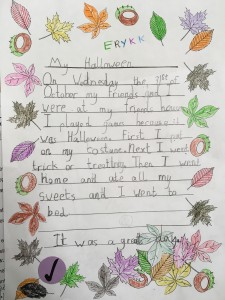 ERYKK
My Halloween
On Wednesday the 31st of
October my friends and I
were at my friends house
I played games because it
was Halloween. First I put
on my costume. Next I went
trick or treating. Then I went
home and ate all my
sweets and I went to
bed
It was a great day